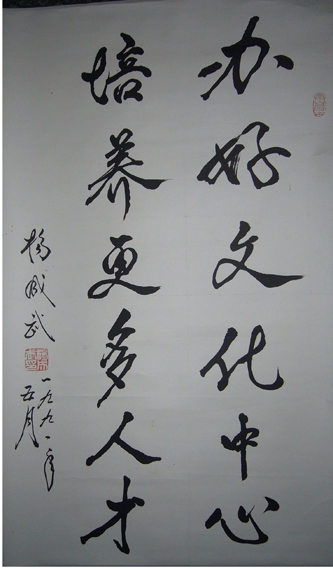 办好文化中心
培养更多人才
杨成武
一九九一年
五月